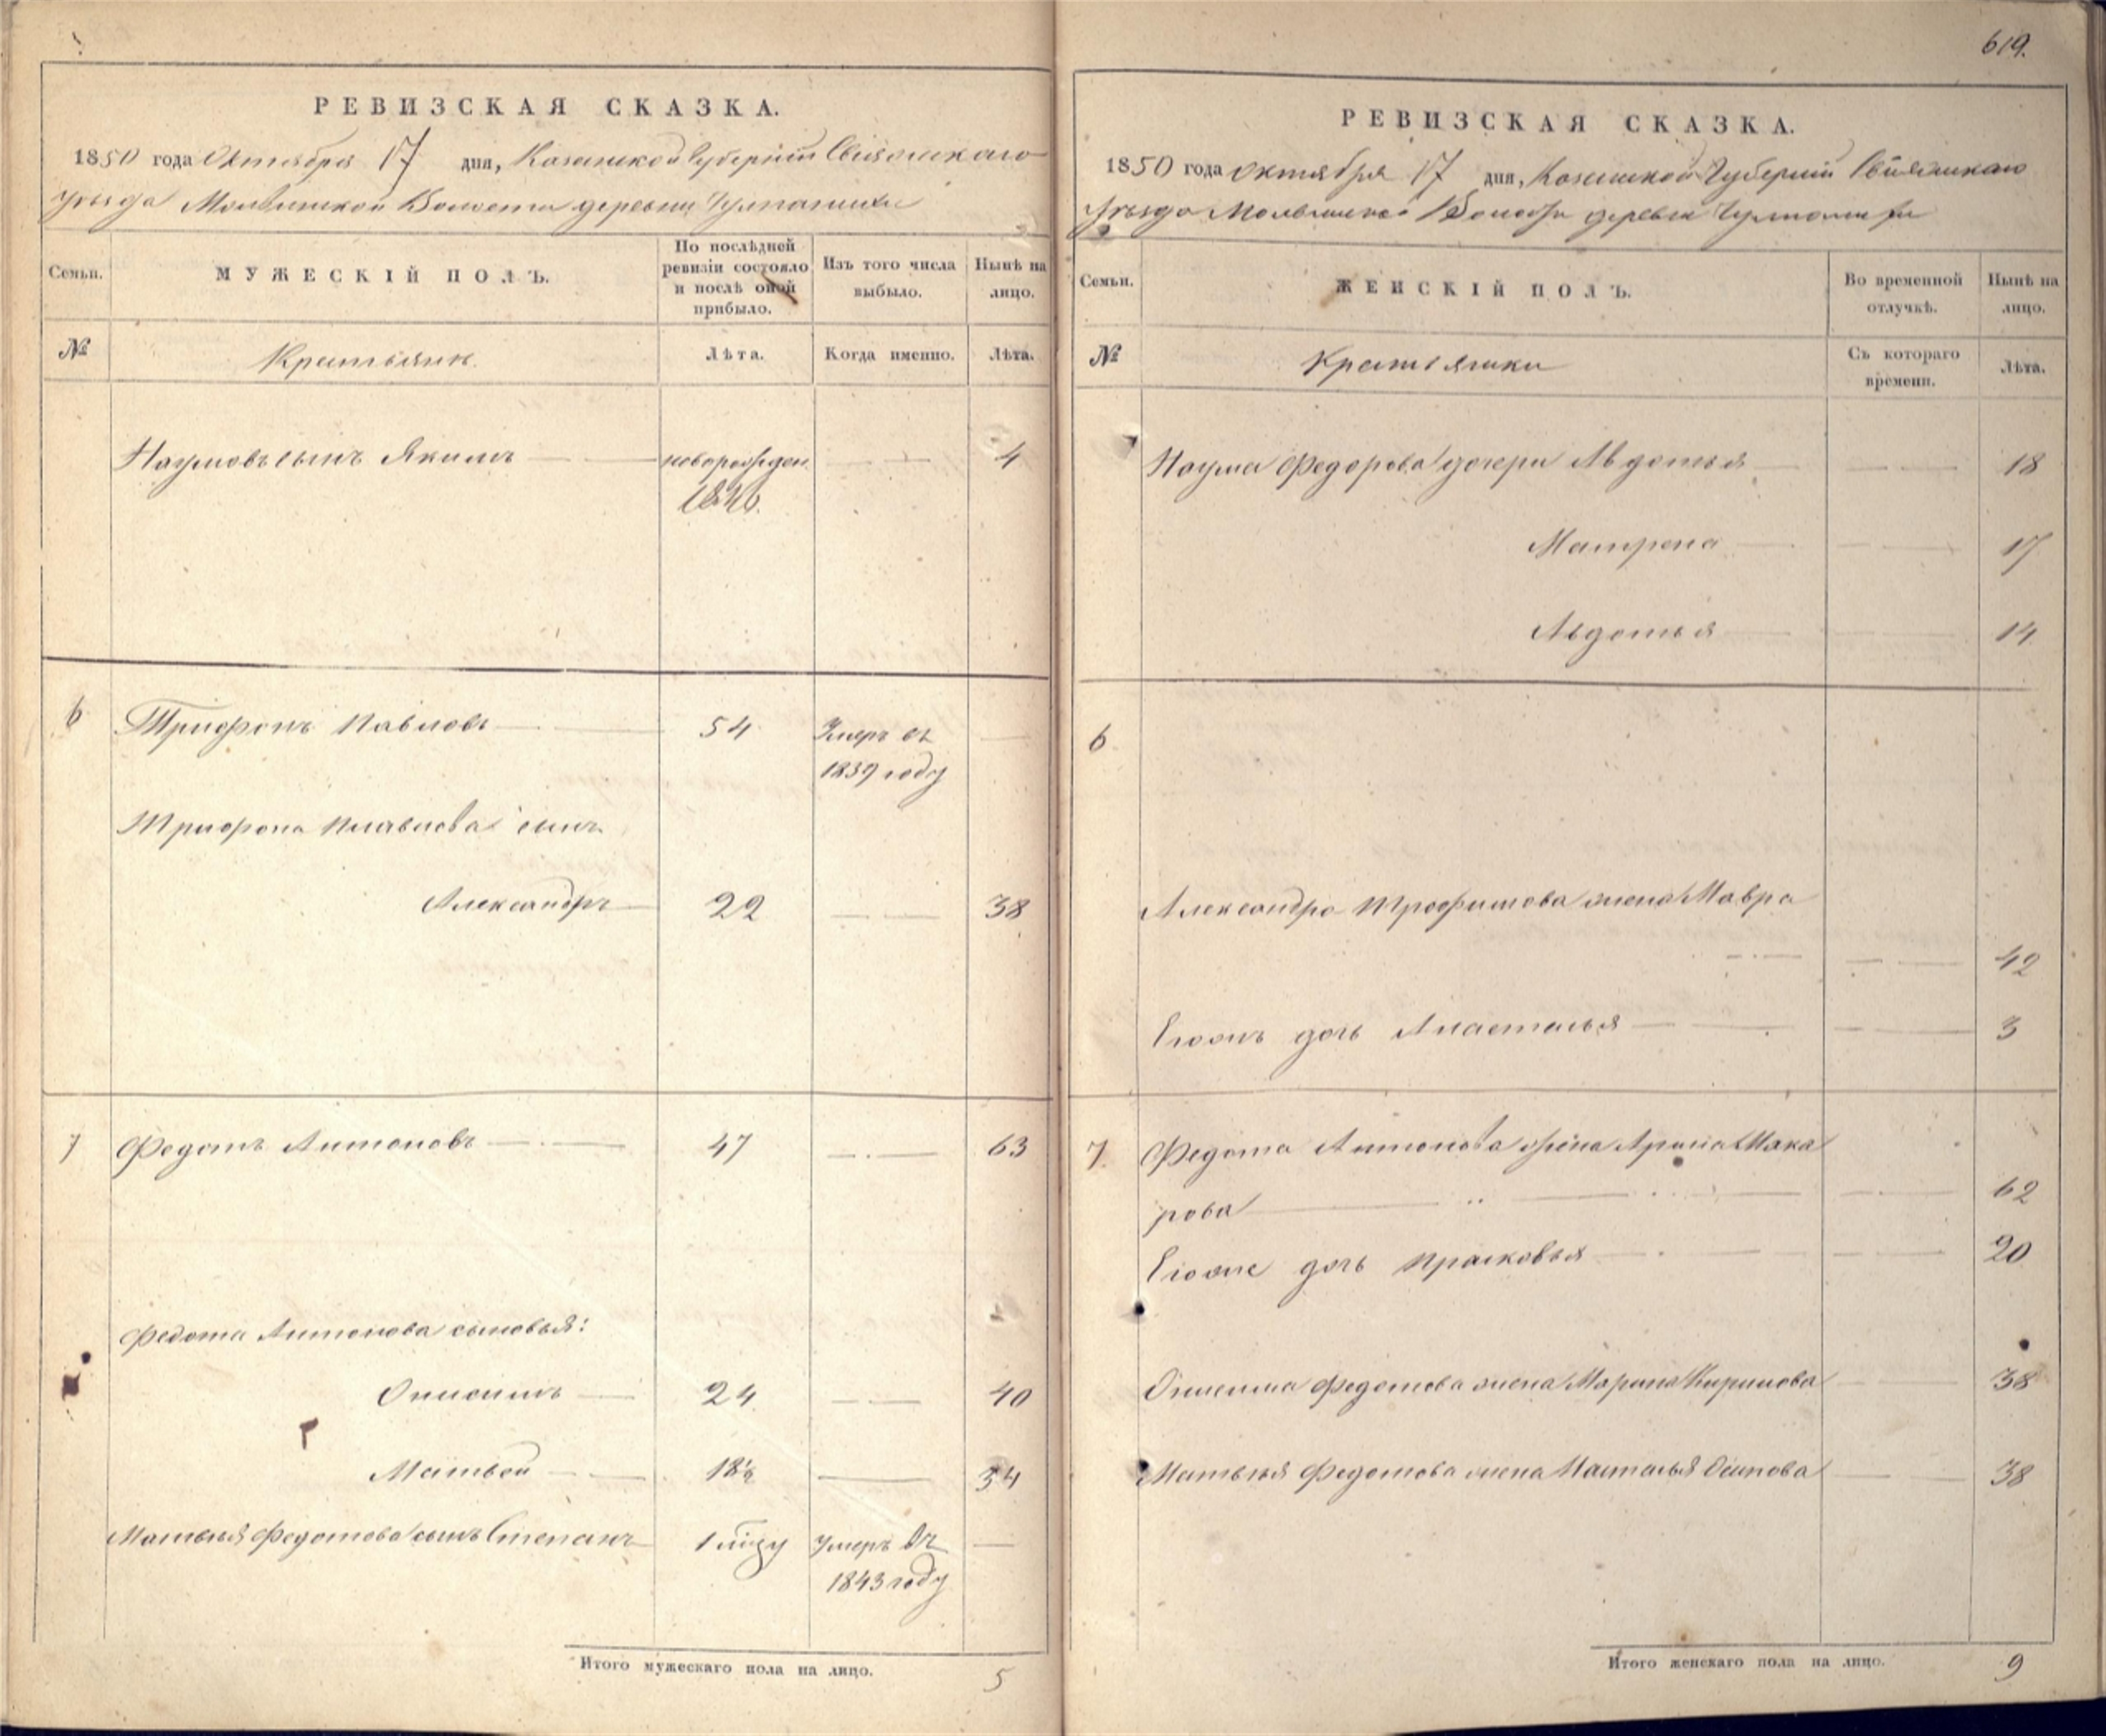 619.
РЕВИЗСКАЯ СКАЗКА.
1850 года Октября 17 дня, Казанской Губерніи Свіяжскаго
уѣзда Молвинской Волости деревни
Семьи. МУЖЕСКІЙ ПОЛЪ. По послѣдней ревизіи состояло и послѣ оной прибыло. Изъ того числа выбыло. Нынѣ на лицо.
№ Крестьяне. Лѣта. Когда именно. Лѣта.
Наумовъ сынъ Якимъ новорожден. 4
1846.
6 Трифонъ Павловъ 54 Умеръ въ
1839 году
Трифона Павлова сынъ
Александръ 22 38
7 Федотъ Антоновъ 47 63
Федота Антонова сыновья:
Онисимъ 24 40
Матвей 18½ 34
Матвѣя Федотова сынъ Степанъ 1 Умеръ въ
1843 году
Итого мужескаго пола на лицо. 5
РЕВИЗСКАЯ СКАЗКА.
1850 года октября 17 дня, Казанской Губерніи Свіяжскаго
Уѣзда Молвинской Волости деревни
Семьи. ЖЕНСКІЙ ПОЛЪ. Во временной отлучкѣ. Нынѣ на лицо.
№ Крестьянки Съ котораго времени. Лѣта.
Наума Федорова дочери Авдотья 18
Матрена 17
Авдотья 14
6
Александра Трофимова жена Мавра
42
Егожъ дочь Анастасья 3
7. Федота Антонова жена Арина Мака
рова 62
Егоже дочь Прасковья 20
Онисима Федотова жена Марина Кирилова 38
Матвѣя Федотова жена Наталья Осипова 38
Итого женскаго пола на лицо. 9